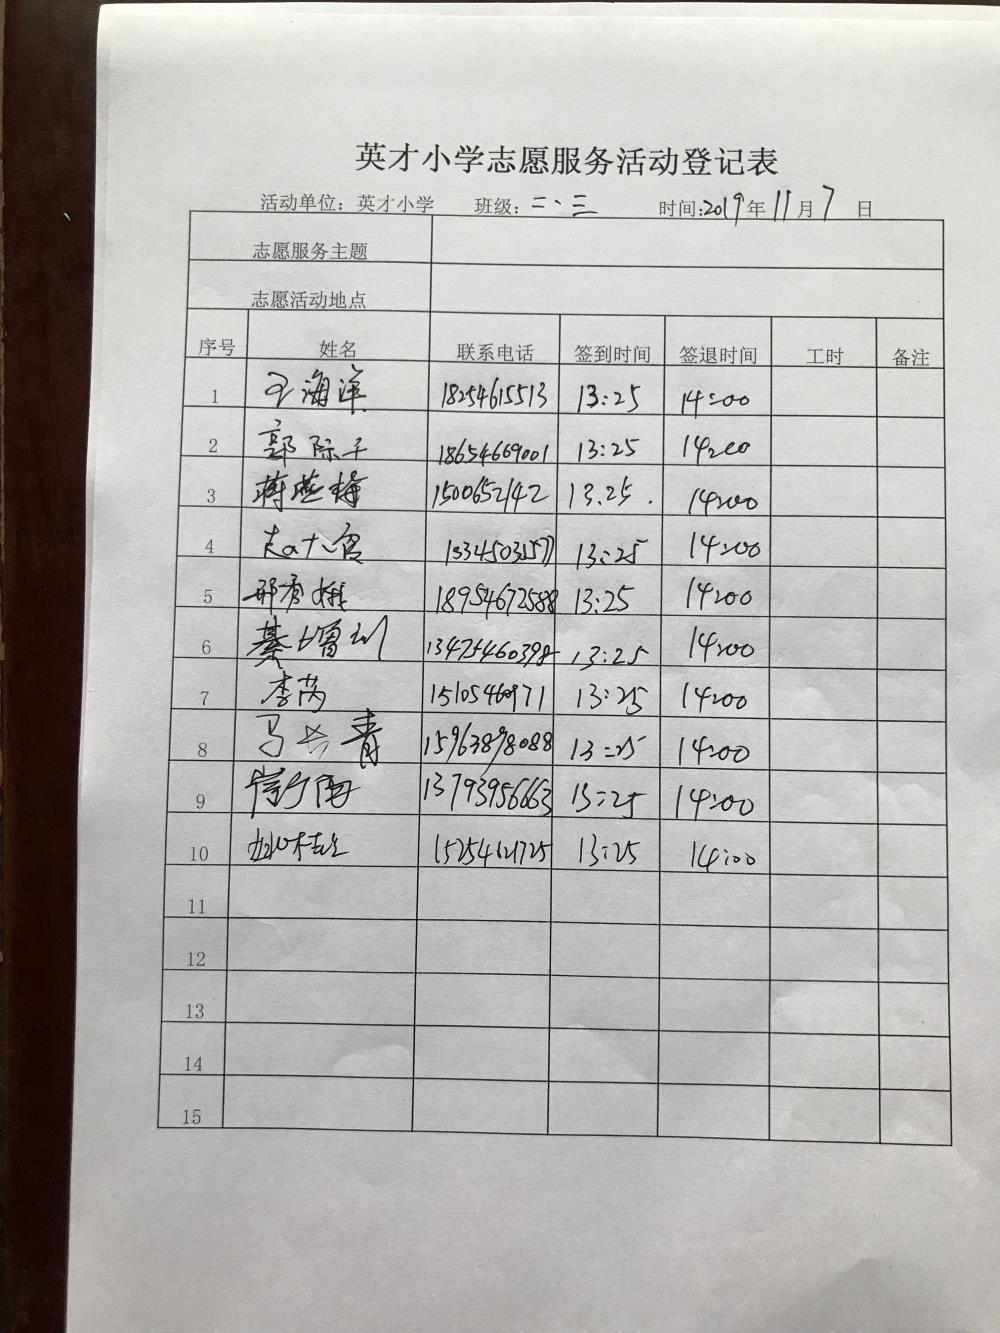 英才小学志愿服务活动登记表
活动单位：英才小学 班级：二、三 时间:2019年11月7日
志愿服务主题
志愿活动地点
序号 姓名 联系电话 签到时间 签退时间 工时 备注
1 王海洋 18254615513 13:25 14:00
2 郭际子 18654669001 13:25 14:00
3 蒋燕梅 1500652142 13:25. 14:00
4 13:25 14:00
5 邢秀 18954672588 13:25 14:00
6 綦增 13:25 14:00
7 李芮 13:25 14:00
8 马长青 15963898088 13:25 14:00
9 13793956663 13:25 14:00
10 15254621725 13:25 14:00
11
12
13
14
15